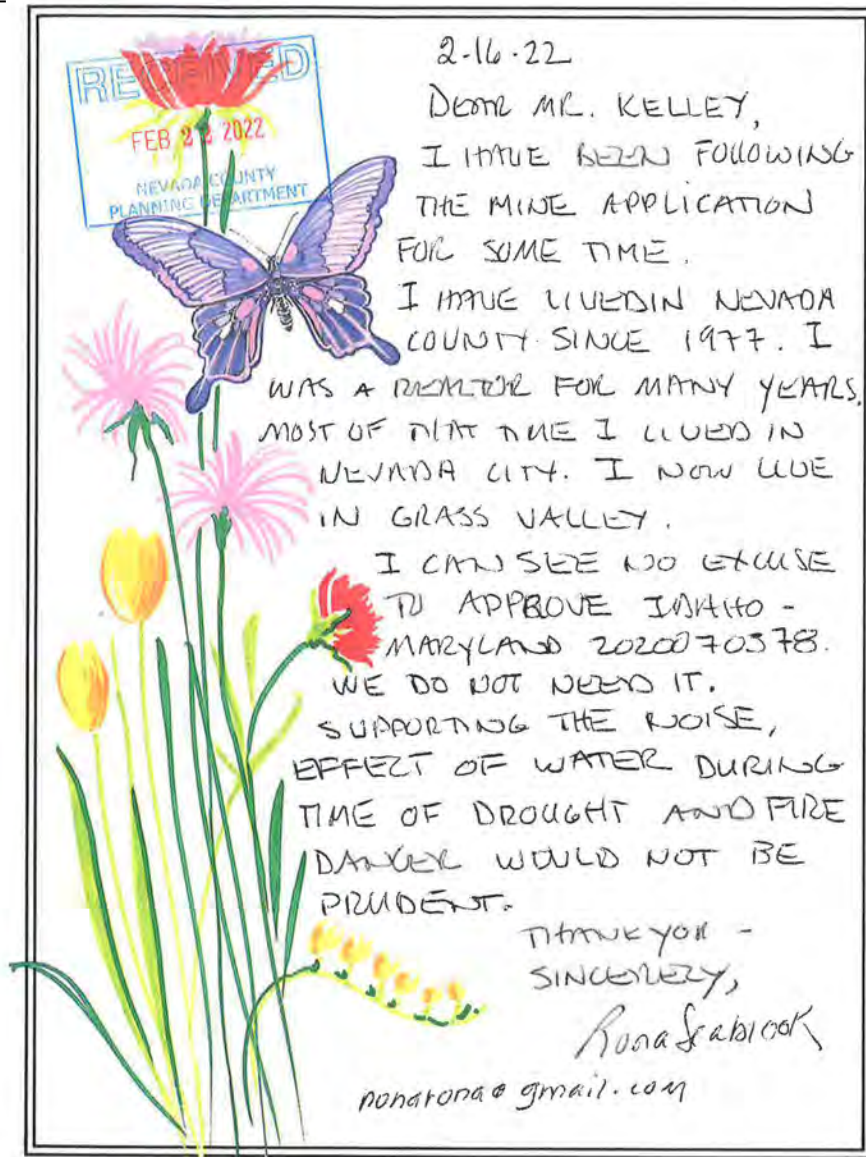 RECEIVED
FEB 22 2022
NEVADA COUNTY
PLANNING DEPARTMENT
2-16-22
DEAR MR. KELLEY,
I HAVE BEEN FOLLOWING
THE MINE APPLICATION
FOR SOME TIME.
I HAVE LIVED IN NEVADA
COUNTY SINCE 1977. I
WAS A REALTOR FOR MANY YEARS.
MOST OF THAT TIME I LIVED IN
NEVADA CITY. I NOW LIVE
IN GRASS VALLEY.
I CAN SEE NO EXCUSE
TO APPROVE IDAHO-
MARYLAND 2020070378.
WE DO NOT NEED IT.
SUPPORTING THE NOISE,
EFFECT OF WATER DURING
TIME OF DROUGHT AND FIRE
DANGER WOULD NOT BE
PRUDENT.
THANK YOU -
SINCERELY,
Rona Seabrook
nonarona@gmail.com